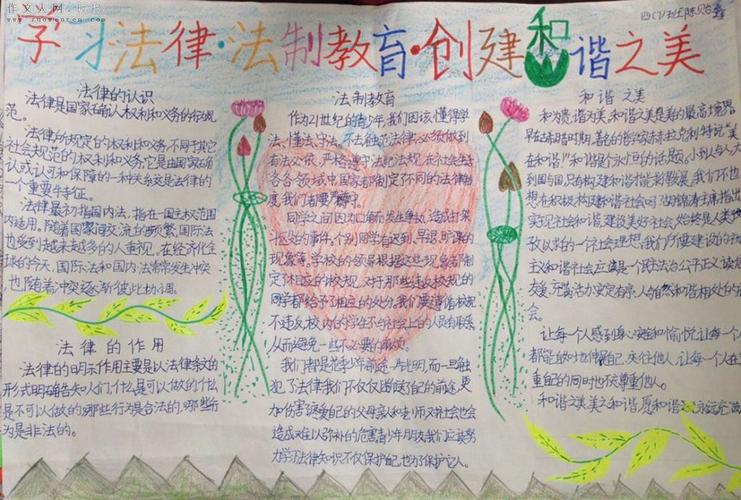 作文人网
www.zuowenren.com
四(1)班陈
学习法律·法制教育·创建和谐之美
法律的认识
法律是国家确认人权利和义务的行为规
范。
法律所规定的权利和义务,不同于其它
社会规范的权利和义务,它是由国家确
认或认可和保障的一种关系这是法律的
一个重要特征。
法律最初指国内法,指在一国主权范围
内适用,随着国家间交流的频繁,国际法
也受到越来越多的人重视,在经济化全
球的今天,国际法和国内法常常发生冲突
也随着冲突逐渐彼此协调。
法律的作用
法律的明示作用主要是以法律条文的
形式明确告知人们,什么是可以做的什么
是不可以做的,哪些行为是合法的,哪些行
为是非法的。
法制教育
作为21世纪的青少年,我们因该懂得学
法、懂法、守法、不去触范法律,必须做到
有法必依,严格遵守法纪法规,在社会生活
各各领域中国家有制定了不同的法律制
度,我们有要严格遵守。
同学之间因为口角而发生争执,造成打架
斗区处的事件,个别同学有迟到、早退、旷课的
现象等,学校的领导根据这些现象者制
定了相应的校规,对于那些违反校规的
同学都给予相应的处分,我们要遵循校规
不违反,校内的学生不与社会上的人员有联系,
从而避免一些不必要的麻烦。
我们都是花季少年前途一片光明,而一旦触
犯了法律我们不仅仅断送了自己的前途,更
加伤害疼爱自己的父母亲人和老师,对社会也会
造成难以弥补的危害,青少年朋友我们应该努
力学习法律知识不仅保护自己,也为了保护它人。
和谐之美
和为贵谐为美,和谐之美是美的最高境界,
早在古希腊时期,著名的哲学家赫拉克利特说"美
在和谐!"和谐是个永恒的话题。小到人与人大
到国与国只有构建和谐才能彩发展,我们不也
想在积极构建和谐社会吗?胡锦涛主席指出
实现社会和谐,建设美好社会,始终是人类孜
孜以求的一个社会理想,我们所要建设的社会
主义和谐社会应该是一个民主法治公平正义诚信
友爱、充满活力安定有序、人与自然和谐相处的社
会。
让每个人感到身心健和愉悦让每一个人
都能放心地伸展自己,关注他人,让每一个人在尊
重自己的同时也能尊重他人。